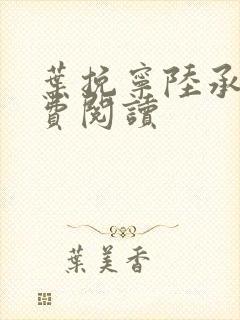 葉挽寧陸承
費閱讀
葉美香